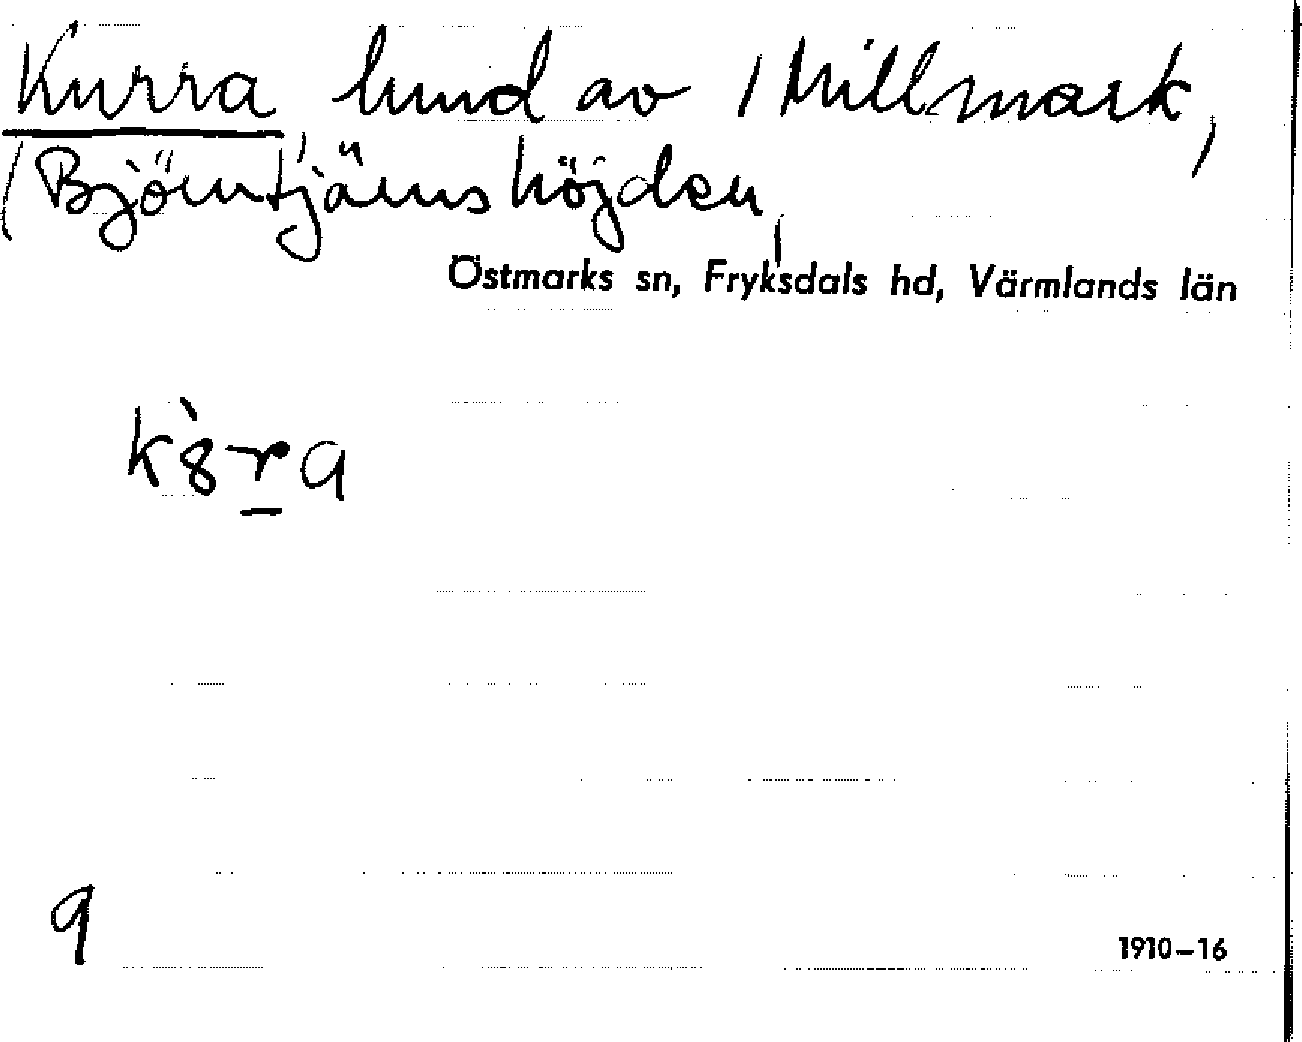 Kurra, hund av / Millmark,
/ Björntjärnshöjden,
Östmarks sn, Fryksdals hd, Värmlands län
k8̀r̲a
9
1910–16